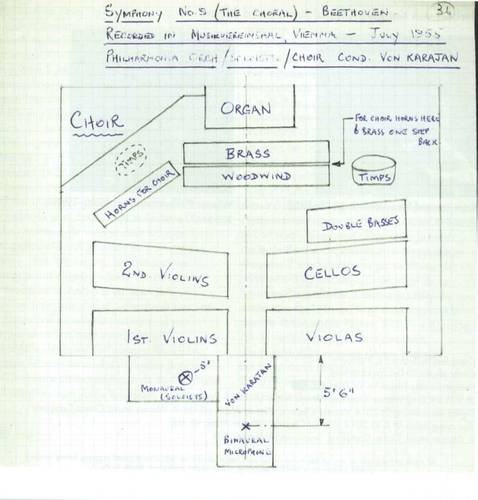 SYMPHONY No. 9 (THE CHORAL) - BEETHOVEN. 34
RECORDED IN MUSIKVEREINSAAL, VIENNA - JULY 1955
PHILHARMONIA ORCH / SOLOISTS / CHOIR COND. VON KARAJAN
CHOIR
ORGAN
FOR CHOIR HORNS HERE
& BRASS ONE STEP
BACK.
TIMPS
BRASS
WOODWIND
TIMPS
HORNS FOR CHOIR
DOUBLE BASSES
2ND. VIOLINS
CELLOS
1ST. VIOLINS
VIOLAS
5'
MONAURAL
(SOLOISTS)
VON KARAJAN
5'6"
BINAURAL
MICROPHONE